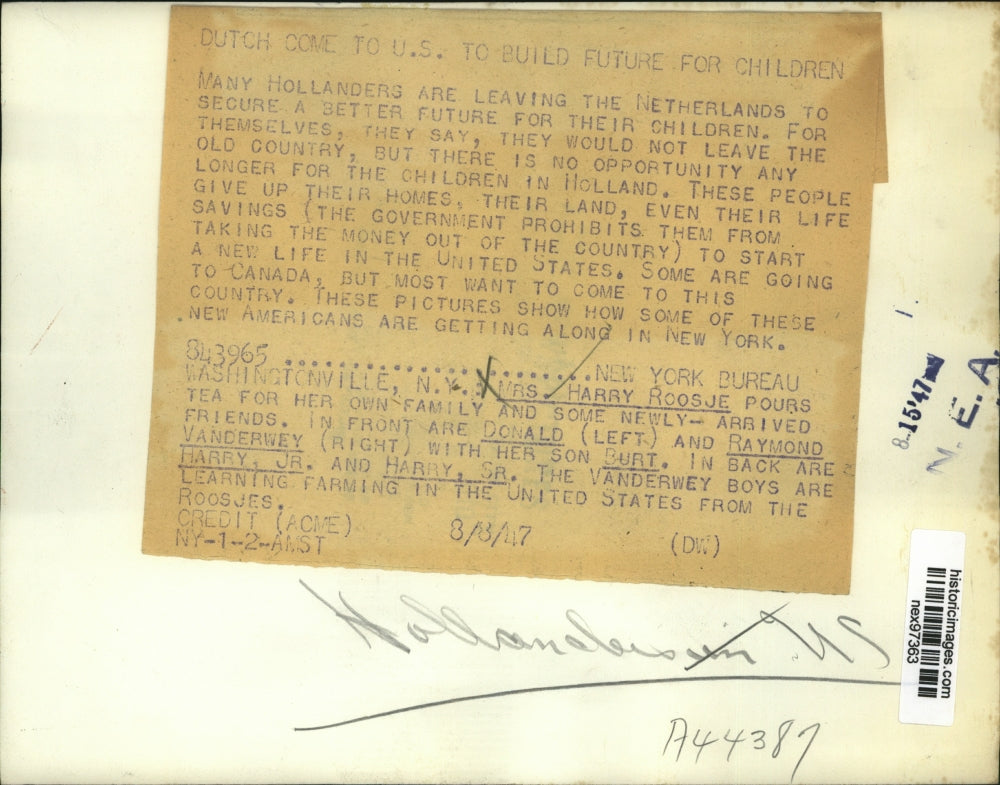 DUTCH COME TO U.S. TO BUILD FUTURE FOR CHILDREN
MANY HOLLANDERS ARE LEAVING THE NETHERLANDS TO
SECURE A BETTER FUTURE FOR THEIR CHILDREN. FOR
THEMSELVES, THEY SAY, THEY WOULD NOT LEAVE THE
OLD COUNTRY, BUT THERE IS NO OPPORTUNITY ANY
LONGER FOR THE CHILDREN IN HOLLAND. THESE PEOPLE
GIVE UP THEIR HOMES, THEIR LAND, EVEN THEIR LIFE
SAVINGS (THE GOVERNMENT PROHIBITS THEM FROM
TAKING THE MONEY OUT OF THE COUNTRY) TO START
A NEW LIFE IN THE UNITED STATES. SOME ARE GOING
TO CANADA, BUT MOST WANT TO COME TO THIS
COUNTRY. THESE PICTURES SHOW HOW SOME OF THESE
NEW AMERICANS ARE GETTING ALONG IN NEW YORK.
843965 ......................NEW YORK BUREAU
WASHINGTONVILLE, N.Y.: MRS. HARRY ROOSJE POURS
TEA FOR HER OWN FAMILY AND SOME NEWLY-ARRIVED
FRIENDS. IN FRONT ARE DONALD (LEFT) AND RAYMOND
VANDERWEY (RIGHT) WITH HER SON BURT. IN BACK ARE
HARRY, JR. AND HARRY, SR. THE VANDERWEY BOYS ARE
LEARNING FARMING IN THE UNITED STATES FROM THE
ROOSJES.
CREDIT (ACME)
NY-1-2-AMST 8/8/47 (DW)
8-15'47
N. E. A.
historicimages.com
nex97363
Hollanders in US
A44387